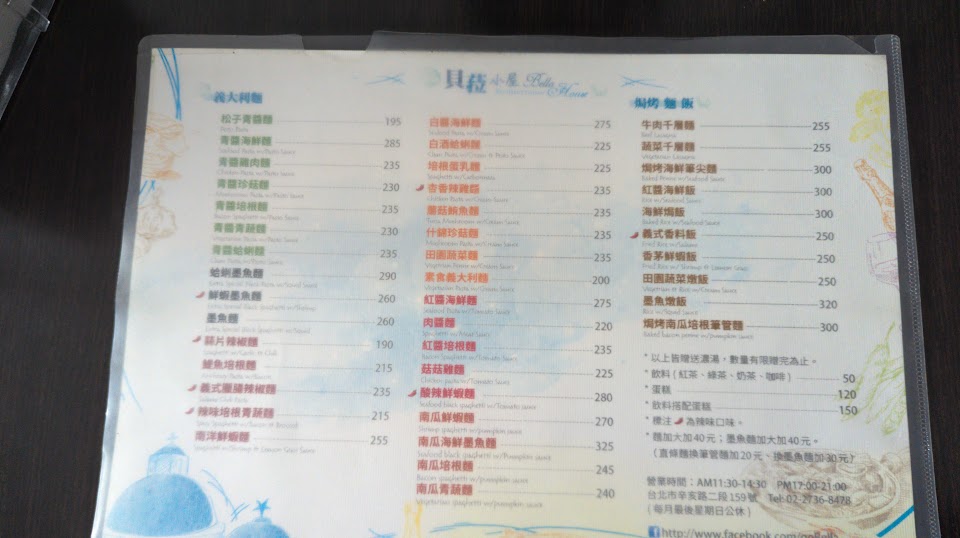 貝菈小屋 Bella House
義大利麵
松子青醬麵 195
Pesto Pasta
青醬海鮮麵 285
Seafood Pasta w/Pesto Sauce
青醬雞肉麵 235
Chicken Pasta w/Pesto Sauce
青醬珍菇麵 230
Mushroom Pasta w/Pesto Sauce
青醬培根麵 235
Bacon Spaghetti w/Pesto Sauce
青醬青蔬麵 230
Vegetarian Pasta w/Pesto Sauce
青醬蛤蜊麵 235
Clam Pasta w/Pesto Sauce
蛤蜊墨魚麵 290
鮮蝦墨魚麵 260
墨魚麵 260
蒜片辣椒麵 190
Spaghetti w/Garlic & Chili
鯷魚培根麵 215
義式臘腸辣椒麵 235
辣味培根青蔬麵 215
南洋鮮蝦麵 255
白醬海鮮麵 275
Seafood Pasta w/Cream Sauce
白酒蛤蜊麵 225
培根蛋乳麵 225
Spaghetti w/Carbonara
杏香辣雞麵 235
Chicken Pasta w/Cream Sauce
蘑菇鮪魚麵 235
Tuna Mushroom w/Cream Sauce
什錦珍菇麵 235
Mushroom Pasta w/Cream Sauce
田園蔬菜麵 235
Vegetarian Penne w/Cream Sauce
素食義大利麵 200
Vegetarian Pasta w/Cream Sauce
紅醬海鮮麵 275
Seafood Pasta w/Tomato Sauce
肉醬麵 220
Spaghetti w/Meat Sauce
紅醬培根麵 235
Bacon Spaghetti w/Tomato Sauce
菇菇雞麵 225
Chicken pasta w/Tomato Sauce
酸辣鮮蝦麵 280
Seafood black spaghetti w/Tomato sauce
南瓜鮮蝦麵 270
Shrimp spaghetti w/pumpkin sauce
南瓜海鮮墨魚麵 325
Seafood black spaghetti w/Pumpkin sauce
南瓜培根麵 245
Bacon spaghetti w/pumpkin sauce
南瓜青蔬麵 240
Vegetarian spaghetti w/pumpkin sauce
焗烤 麵 飯
牛肉千層麵 255
Beef Lasagna
蔬菜千層麵 255
Vegetarian Lasagna
焗烤海鮮筆尖麵 300
Baked Penne w/Seafood Sauce
紅醬海鮮飯 300
Rice w/Seafood Sauce
海鮮焗飯 300
Baked Rice w/Seafood Sauce
義式香料飯 250
Fried Rice w/Salami
香茅鮮蝦飯 250
Fried Rice w/Shrimp & Lemon Sauce
田園蔬菜燉飯 250
Vegetarian Rice w/Cream Sauce
墨魚燉飯 320
Rice w/Squid Sauce
焗烤南瓜培根筆管麵 300
Baked bacon penne w/pumpkin sauce
* 以上皆贈送濃湯，數量有限贈完為止。
* 飲料 ( 紅茶、綠茶、奶茶、咖啡 ) 50
* 蛋糕 120
* 飲料搭配蛋糕 150
* 標注 為辣味口味。
* 麵加大加 40 元；墨魚麵加大加 40 元。
( 直條麵換筆管麵加 20 元、換墨魚麵加 30 元 )
營業時間：AM11:30-14:30 PM17:00-21:00
台北市辛亥路二段 159 號 Tel: 02-2736-8478
( 每月最後星期日公休 )